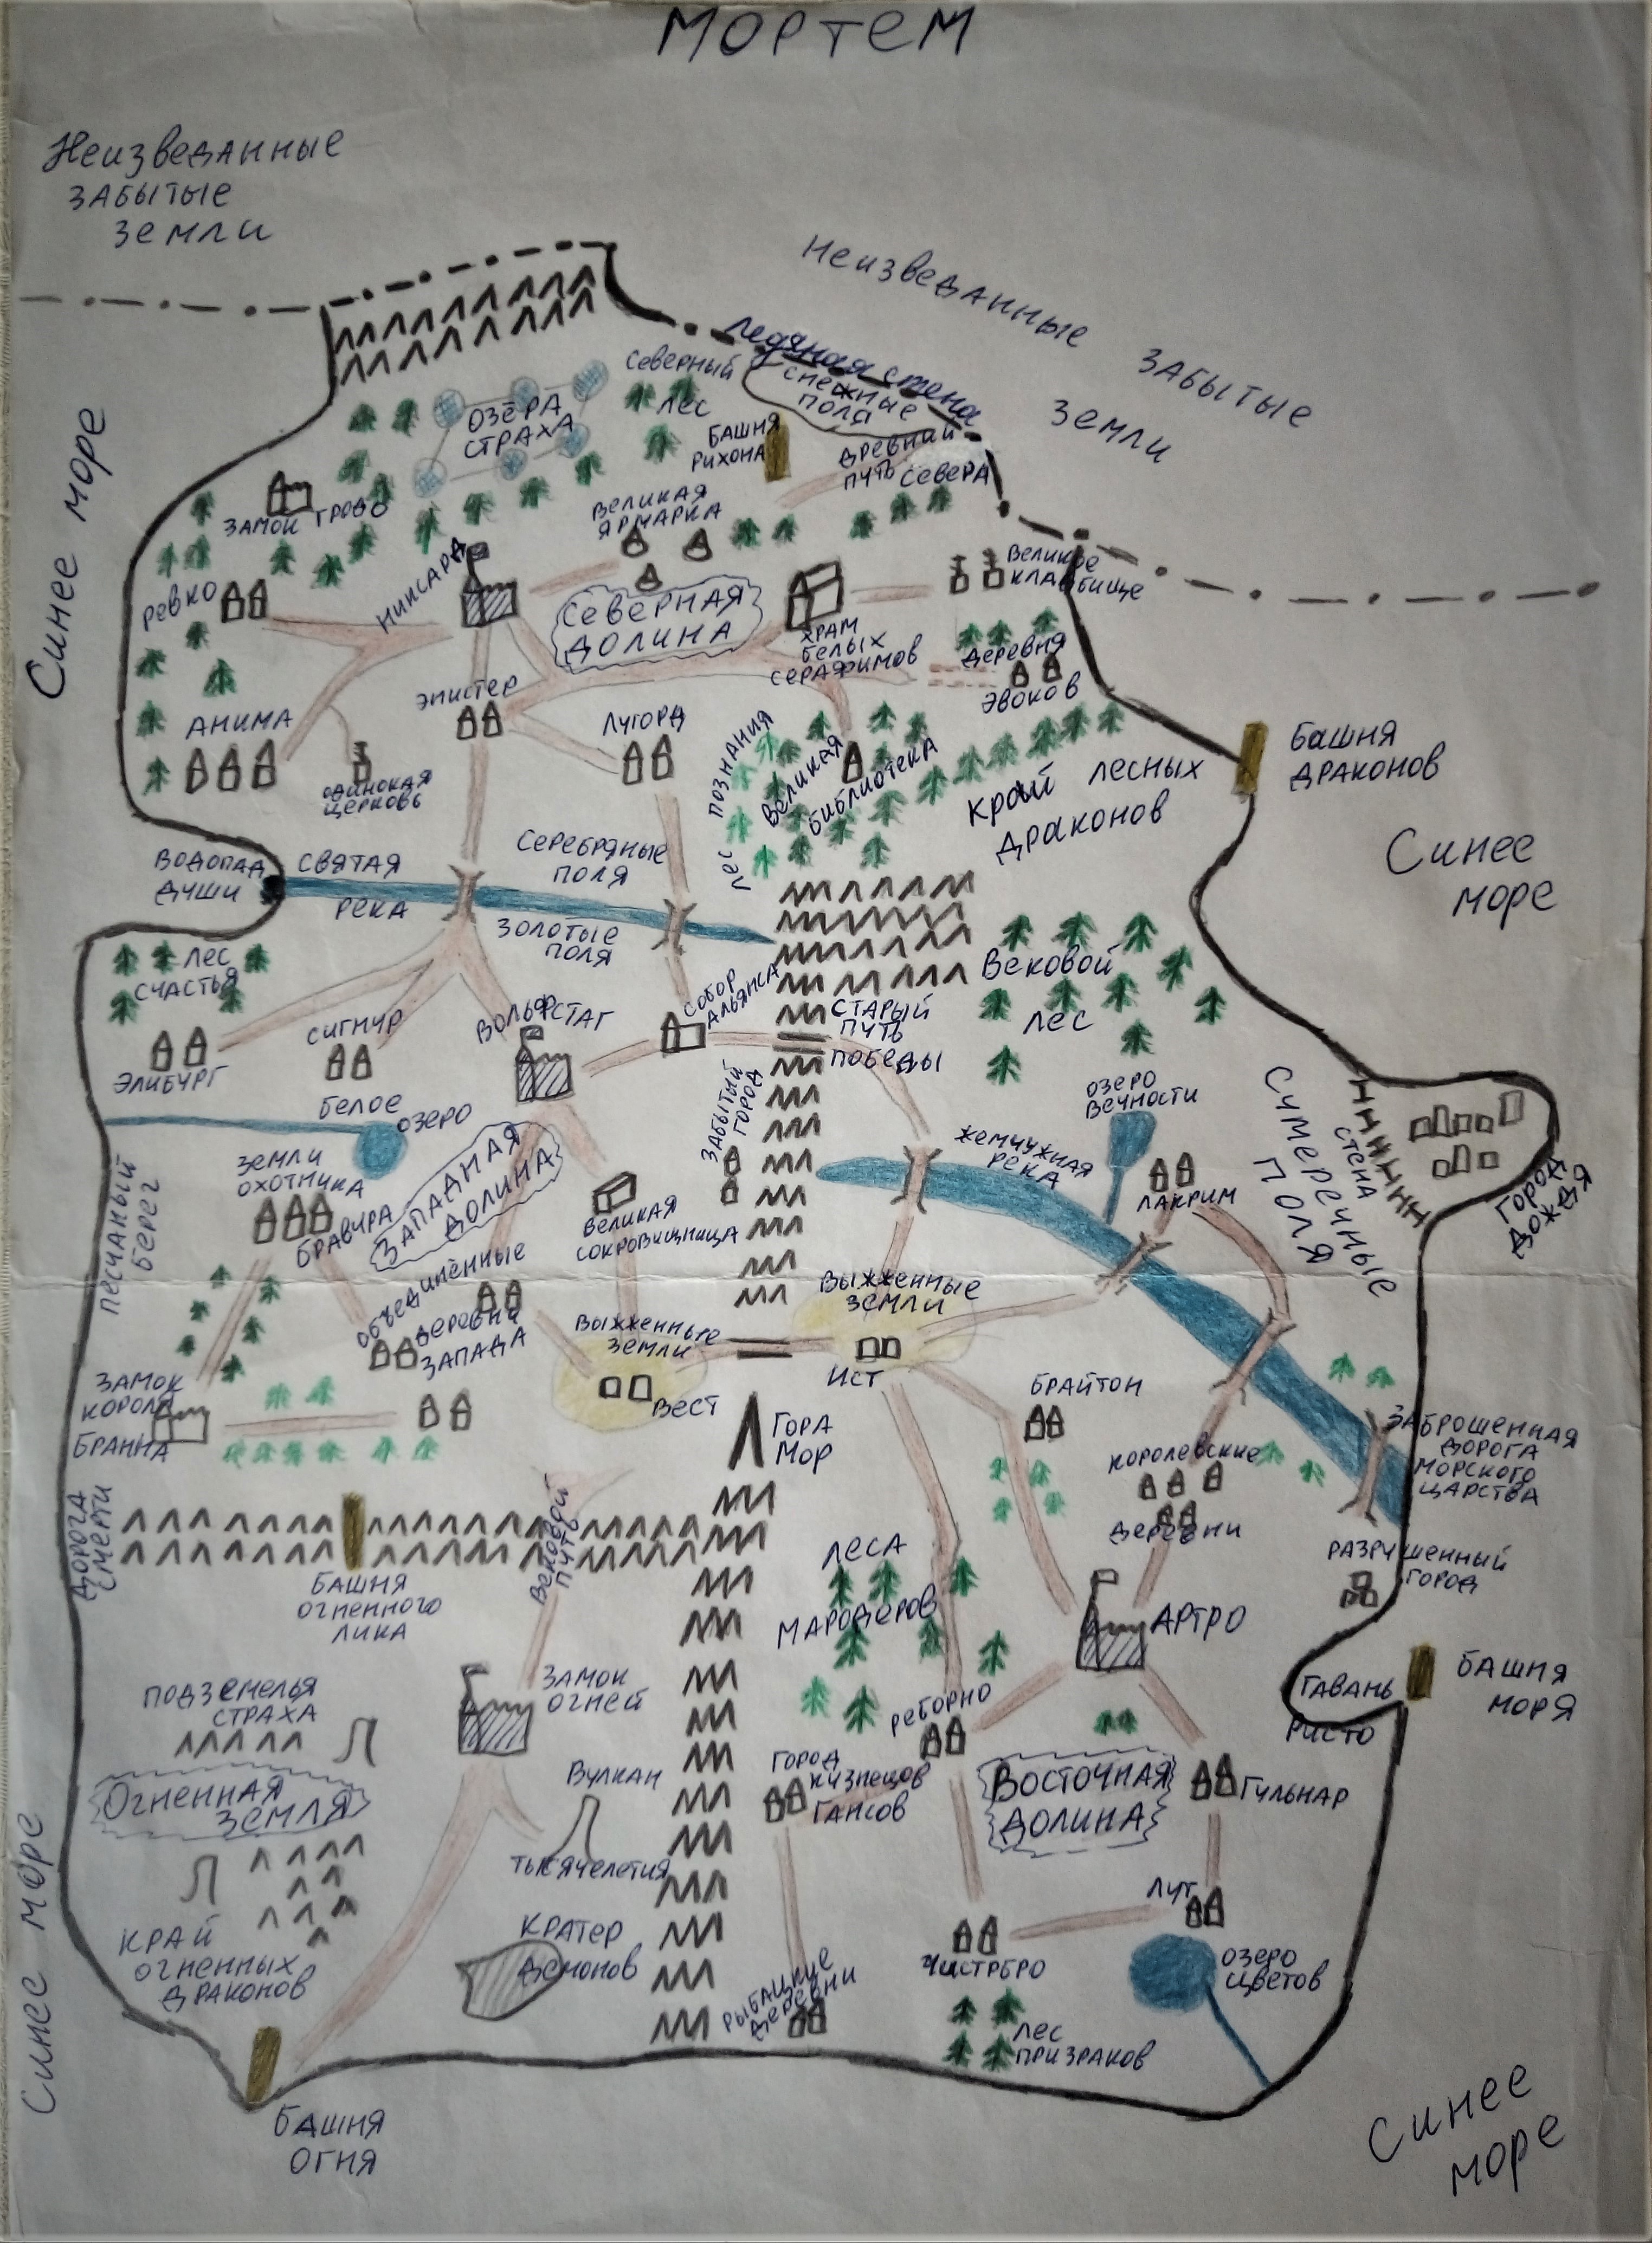 МОРТЕМ
Неизведанные
забытые
земли
Неизведанные
забытые
земли
Ледяная стена
Снежные
поля
Северный
лес
Озёра
страха
Башня
Рихона
Древний
путь Севера
Синее море
Замок Грово
Великая
ярмарка
Великое
кладбище
Ревко
Никсард
Северная
долина
Храм
белых
серафимов
Деревня
эвоков
Эпистер
Анима
Лугорд
Одинокая
церковь
Лес познания
Великая
библиотека
Край лесных
драконов
Башня
драконов
Синее
море
Водопад
души
Святая
река
Серебряные
поля
Золотые
поля
Лес
счастья
Вековой
лес
Собор
Альянса
Старый
путь
победы
Вольфстаг
Сигнур
Элибург
Белое
озеро
Забытый
город
Озеро
вечности
Жемчужная
река
Сумеречные
поля
Стена
Город
дождя
Лакрим
Песчаный
берег
Земли
охотника
Бравура
Западная
долина
Великая
сокровищница
Объединённые
деревни
Запада
Выжженные
земли
Вест
Выжженные
земли
Ист
Замок
короля
Бранна
Гора
Мор
Брайтон
Королевские
деревни
Заброшенная
дорога
морского
царства
Дорога
смерти
Вековой
путь
Башня
огненного
лика
Леса
мародеров
Артро
Разрушенный
город
Гавань
Ристо
Башня
моря
Подземелья
страха
Замок
огней
Реборно
Огненная
земля
Вулкан
тысячелетия
Город
кузнецов
Гансов
Восточная
долина
Гульнар
Синее море
Край
огненных
драконов
Кратер
демонов
Рыбацкие
деревни
Чистрбро
Лут
Озеро
цветов
Лес
призраков
Башня
огня
Синее
море